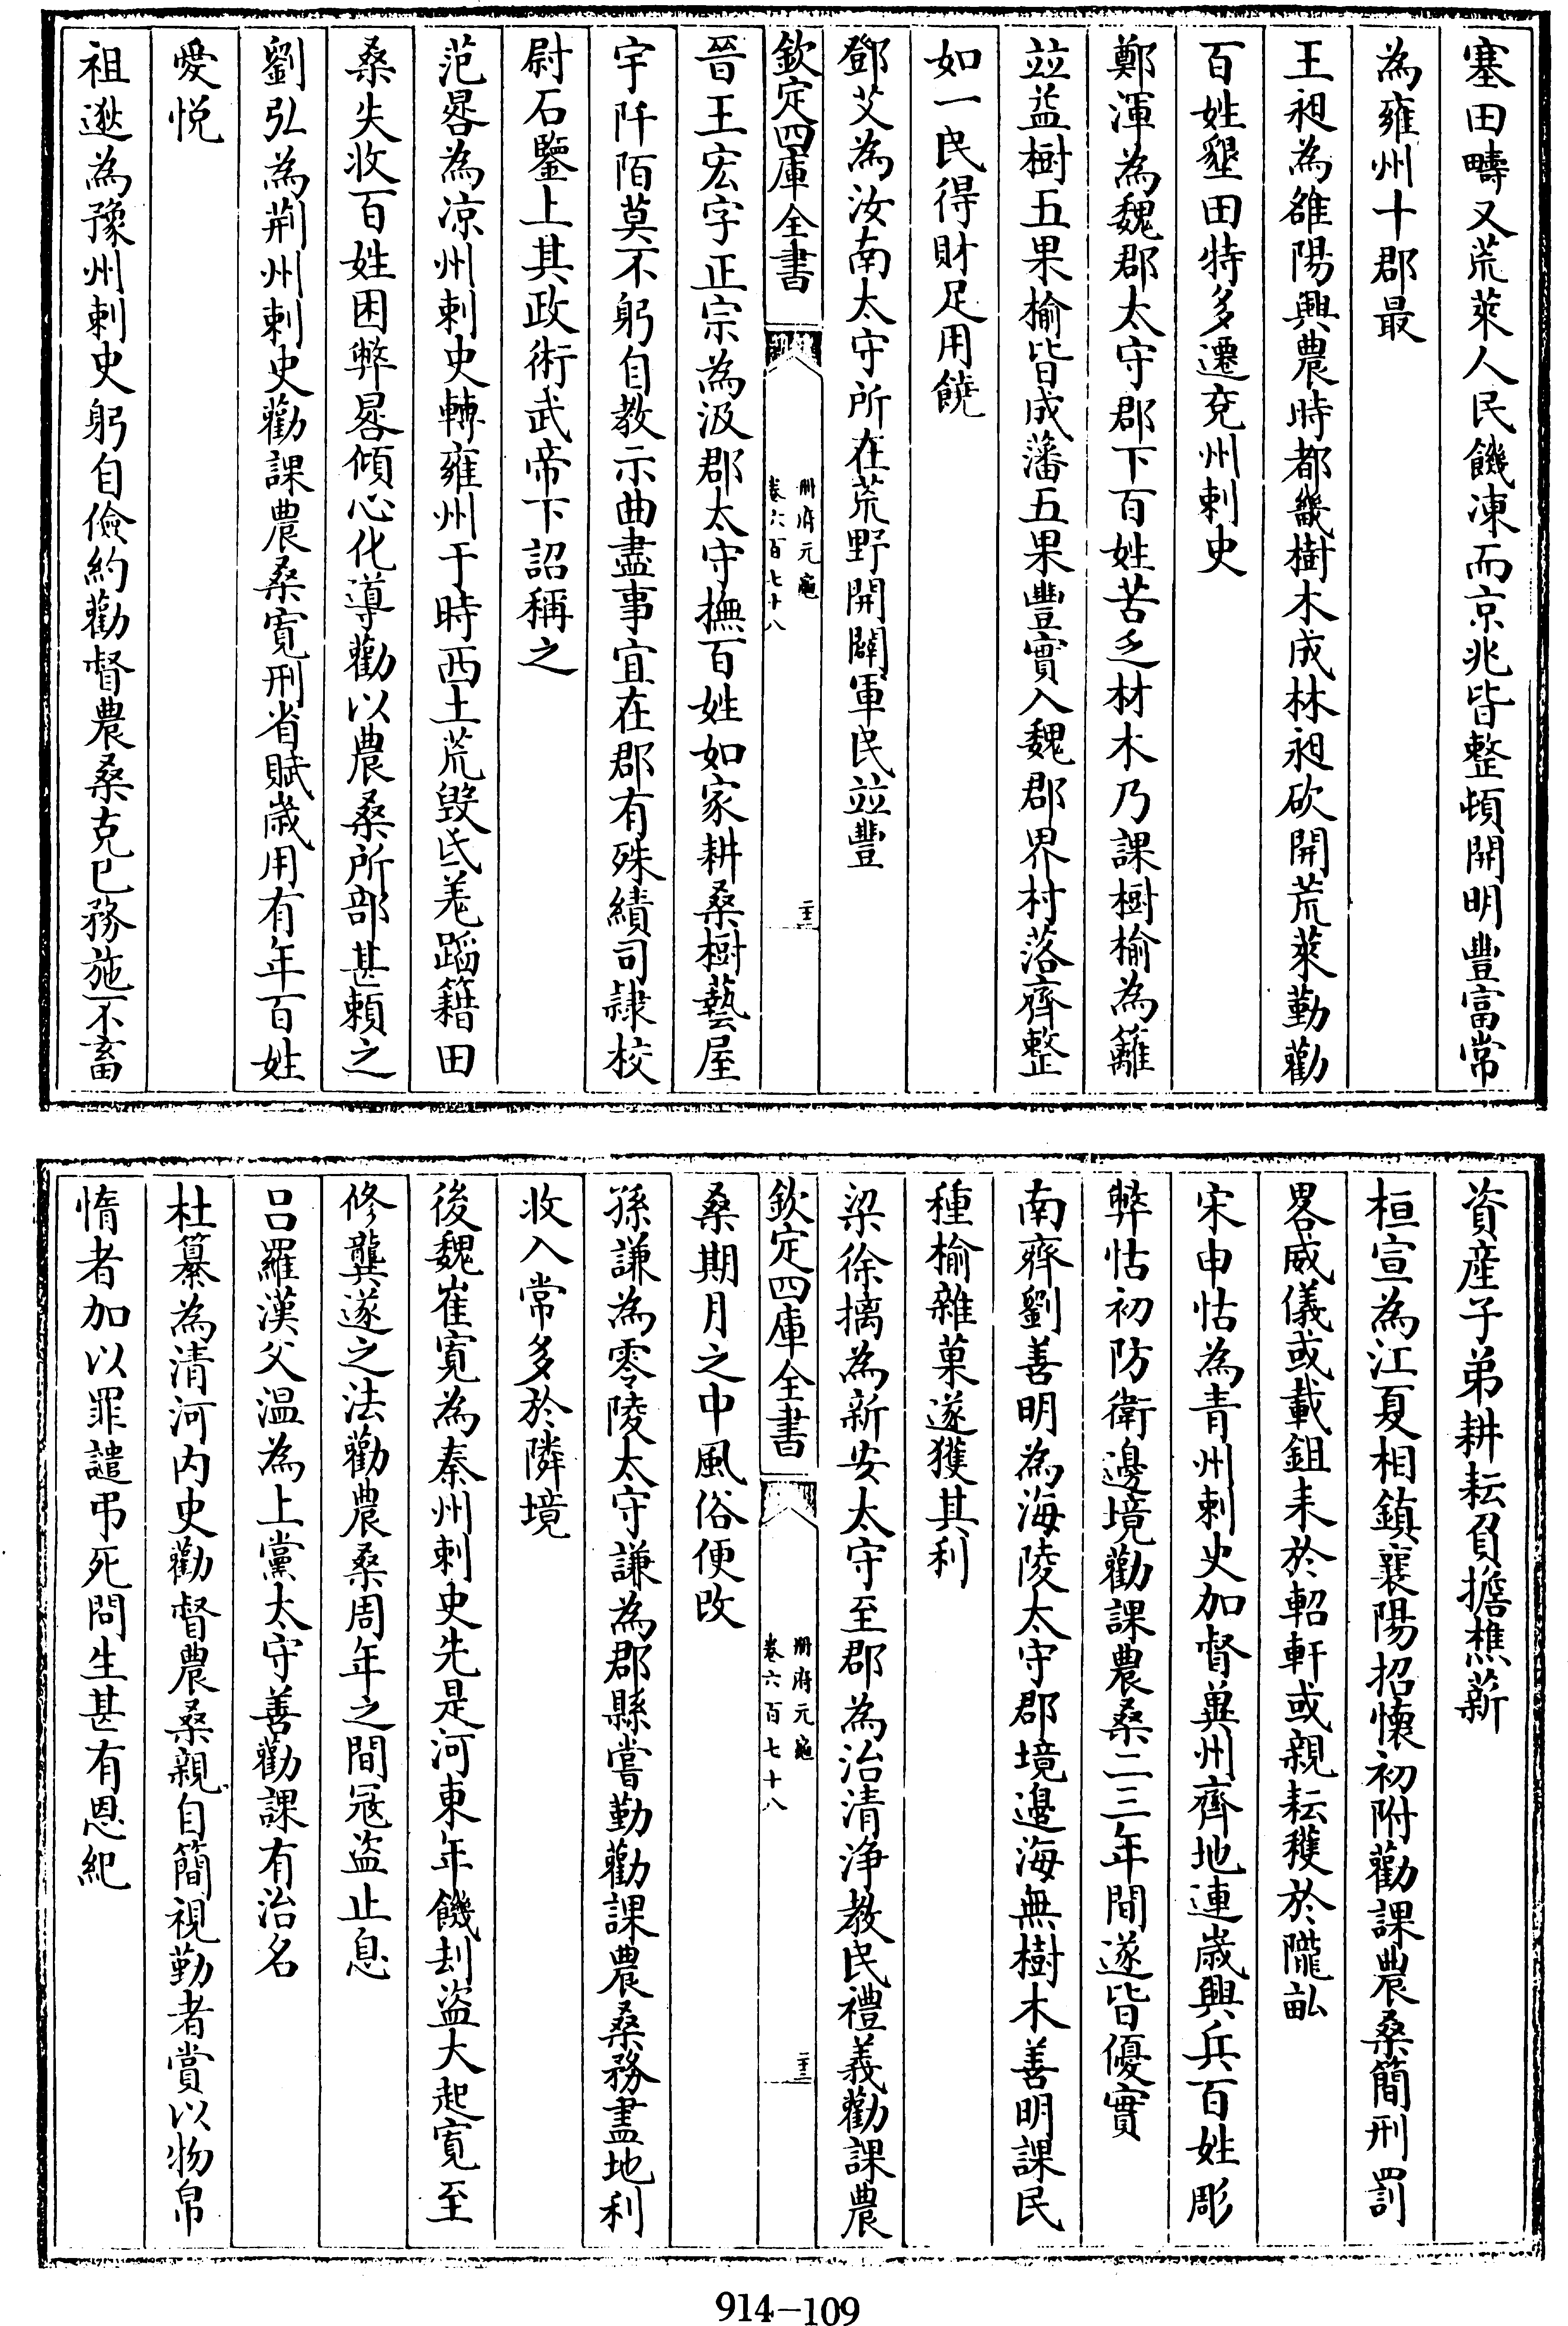 塞田疇又荒萊人民饑凍而京兆皆整頓開明豐富常
為雍州十郡最
王昶為雒陽興農時都畿樹木成林昶砍開荒萊勤勸
百姓墾田特多遷兗州刺史
鄭渾為魏郡太守郡下百姓苦乏材木乃課樹榆為籬
並益樹五果榆皆成藩五果豐實入魏郡界村落齊整
如一民得財足用饒
鄧艾為汝南太守所在荒野開闢軍民並豐
欽定四庫全書
冊府元龜
卷六百七十八
二十三
晉王宏字正宗為汲郡太守撫百姓如家耕桑樹藝屋
宇阡陌莫不躬自教示曲盡事宜在郡有殊績司隸校
尉石鑒上其政術武帝下詔稱之
范晷為凉州刺史轉雍州于時西土荒毁氐羌蹈籍田
桑失收百姓困弊晷傾心化導勸以農桑所部甚頼之
劉弘為荆州刺史勸課農桑寛刑省賦歲用有年百姓
愛悦
祖逖為豫州刺史躬自儉約勸督農桑克已務施不畜
資産子弟耕耘負擔樵薪
桓宣為江夏相鎮襄陽招懷初附勸課農桑簡刑罰
畧威儀或載鉏耒於軺軒或親耘穫於隴畝
宋申怙為青州刺史加督兾州齊地連歲興兵百姓彫
弊怙初防衛邊境勸課農桑二三年間遂皆優實
南齊劉善明為海陵太守郡境邊海無樹木善明課民
種榆雜菓遂獲其利
梁徐摛為新安太守至郡為治清浄教民禮義勸課農
欽定四庫全書
冊府元龜
卷六百七十八
二十三
桑期月之中風俗便改
孫謙為零陵太守謙為郡縣嘗勤勸課農桑務盡地利
收入常多於隣境
後魏崔寛為秦州刺史先是河東年饑刦盜大起寛至
修龔遂之法勸農桑周年之間冦盜止息
吕羅漢父温為上黨太守善勸課有治名
杜纂為清河内史勸督農桑親自簡視勤者賞以物帛
惰者加以罪譴弔死問生甚有恩紀
914-109